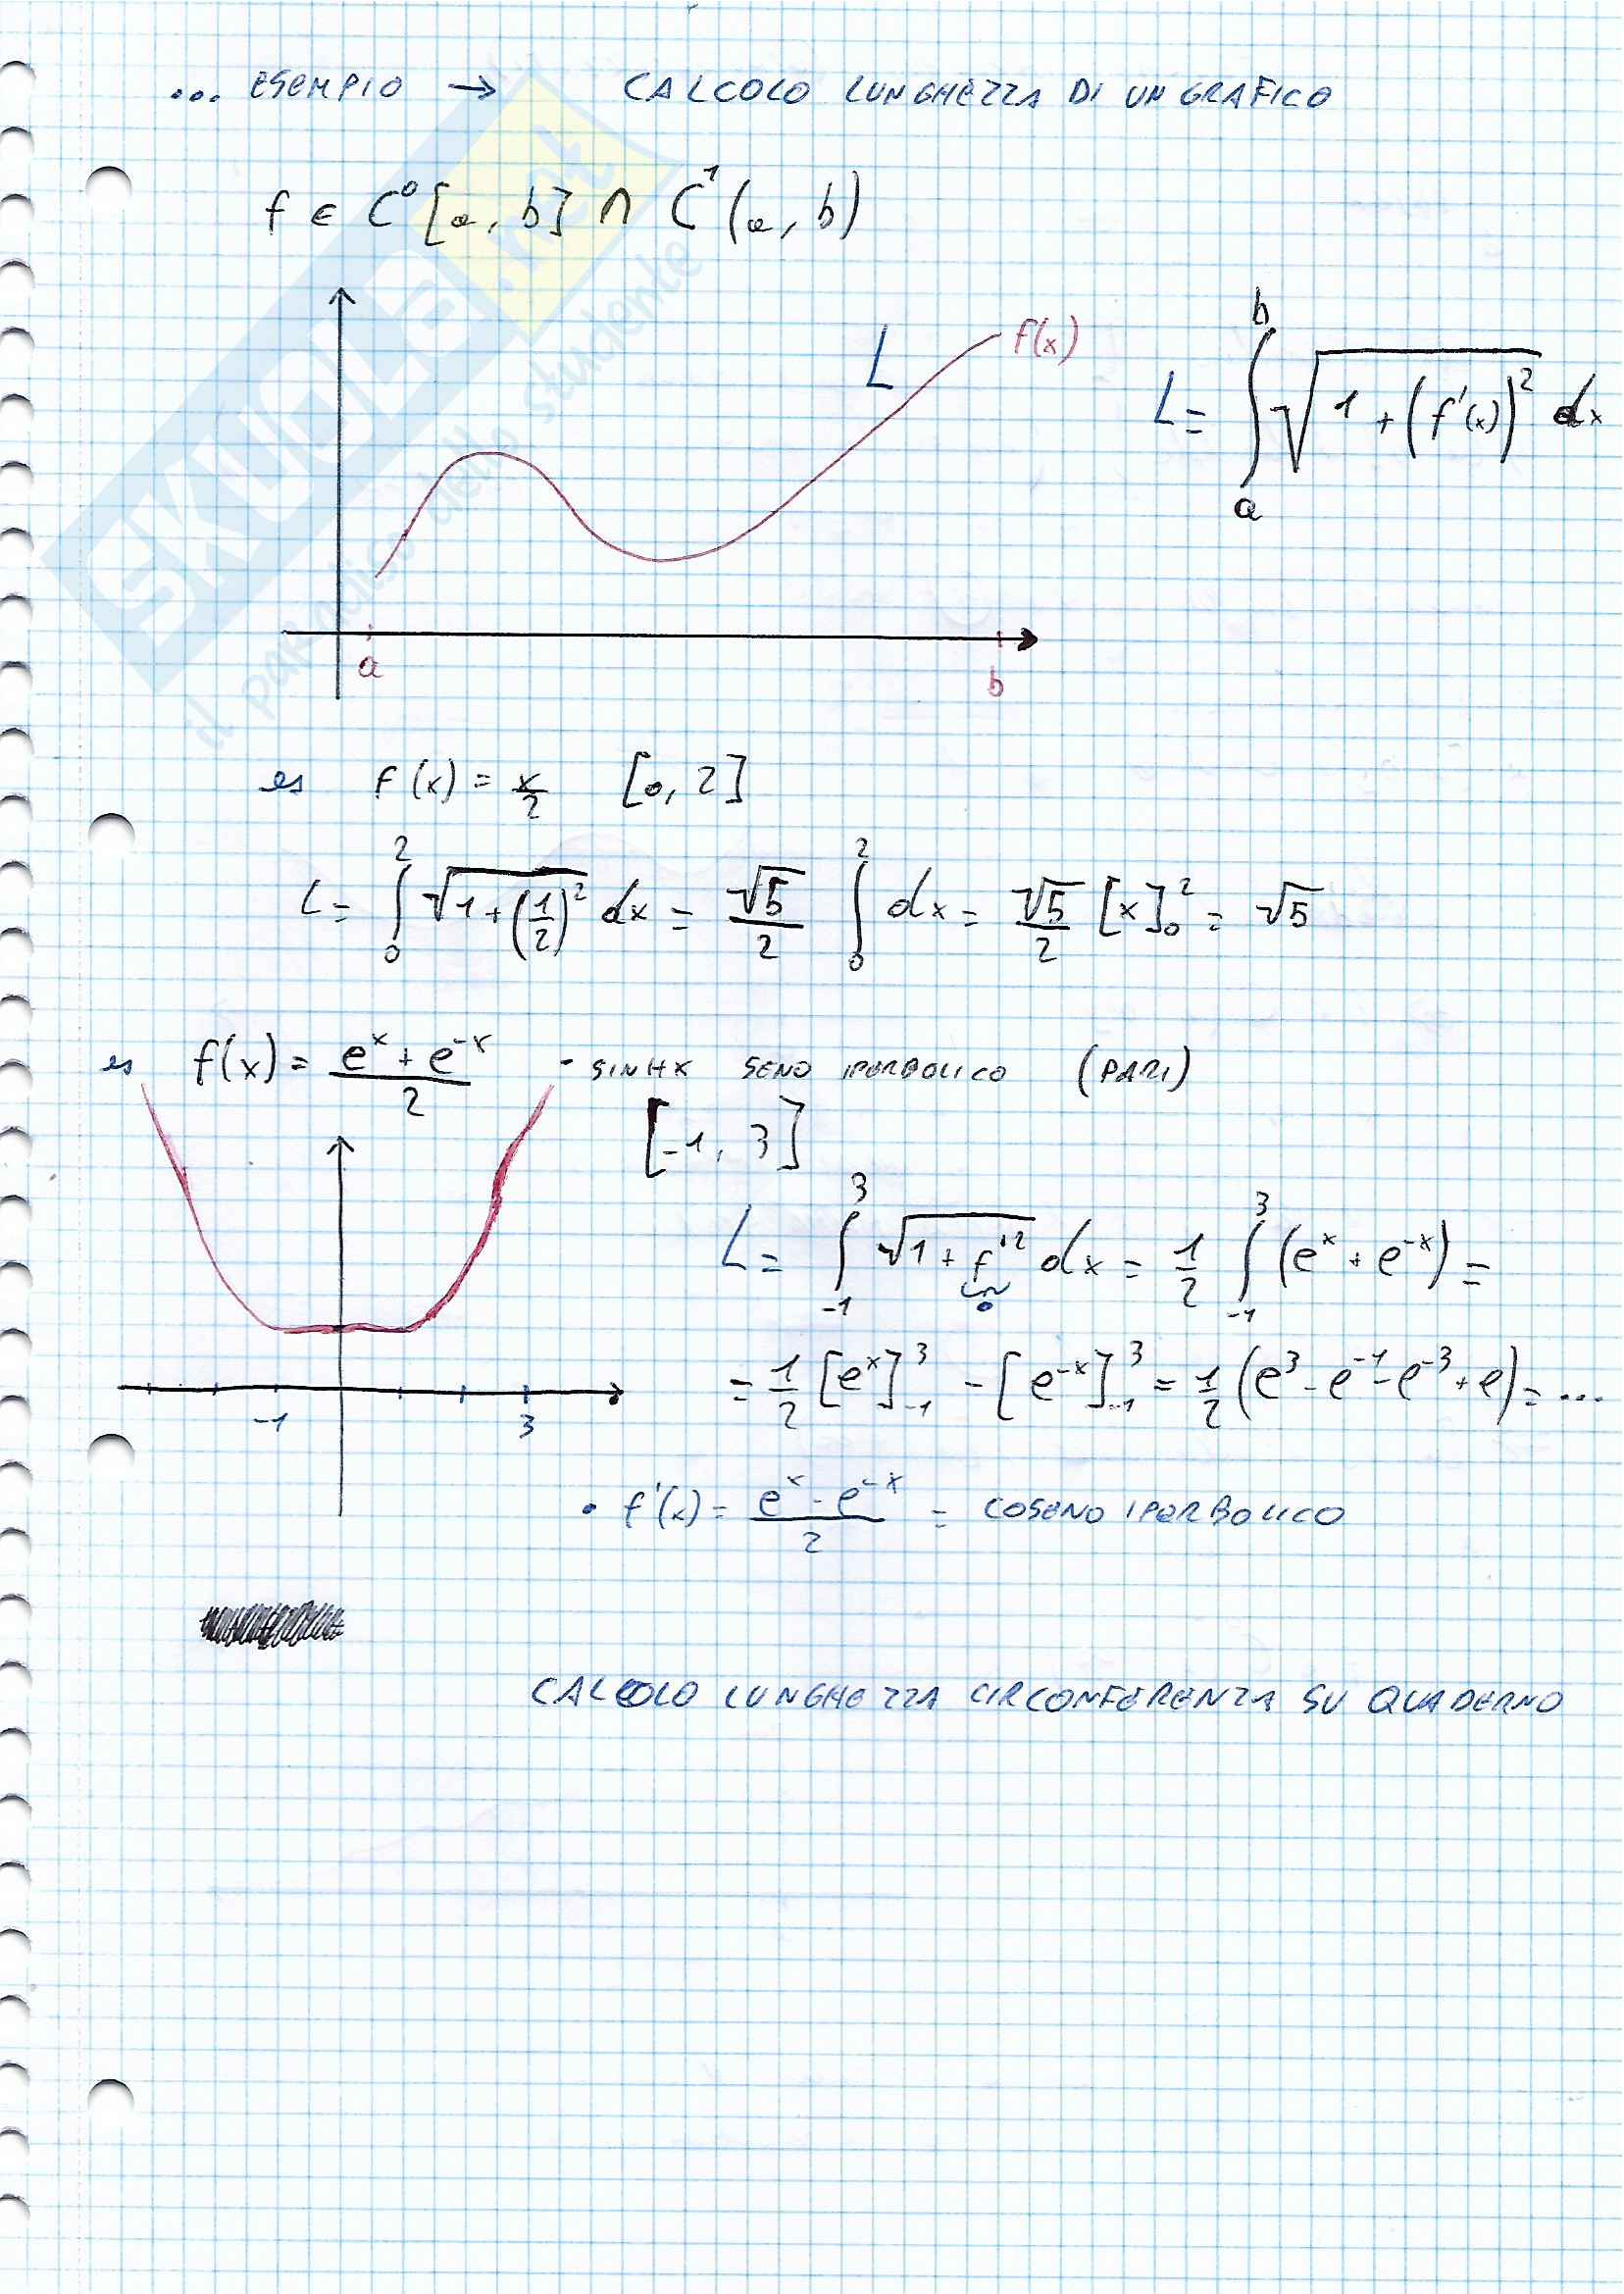 ... ESEMPIO → CALCOLO LUNGHEZZA DI UN GRAFICO
f ∈ C⁰[a, b] ∩ C¹(a, b)
SKUOLA.net
il paradiso dello studente
L
f(x)
L = ∫_a^b √(1 + (f'(x))²) dx
a
b
es f(x) = x/2 [0, 2]
L = ∫_0^2 √(1 + (1/2)²) dx = √5/2 ∫_0^2 dx = √5/2 [x]_0^2 = √5
es f(x) = (e^x + e^-x)/2 - SINHX SENO IPERBOLICO (PARI)
[-1, 3]
L = ∫_-1^3 √(1 + f'²) dx = 1/2 ∫_-1^3 (e^x + e^-x) =
= 1/2 [e^x]_-1^3 - [e^-x]_-1^3 = 1/2 (e^3 - e^-1 - e^-3 + e) = ...
-1 3
• f'(x) = (e^x - e^-x)/2 = COSENO IPERBOLICO
CALCOLO LUNGHEZZA CIRCONFERENZA SU QUADERNO